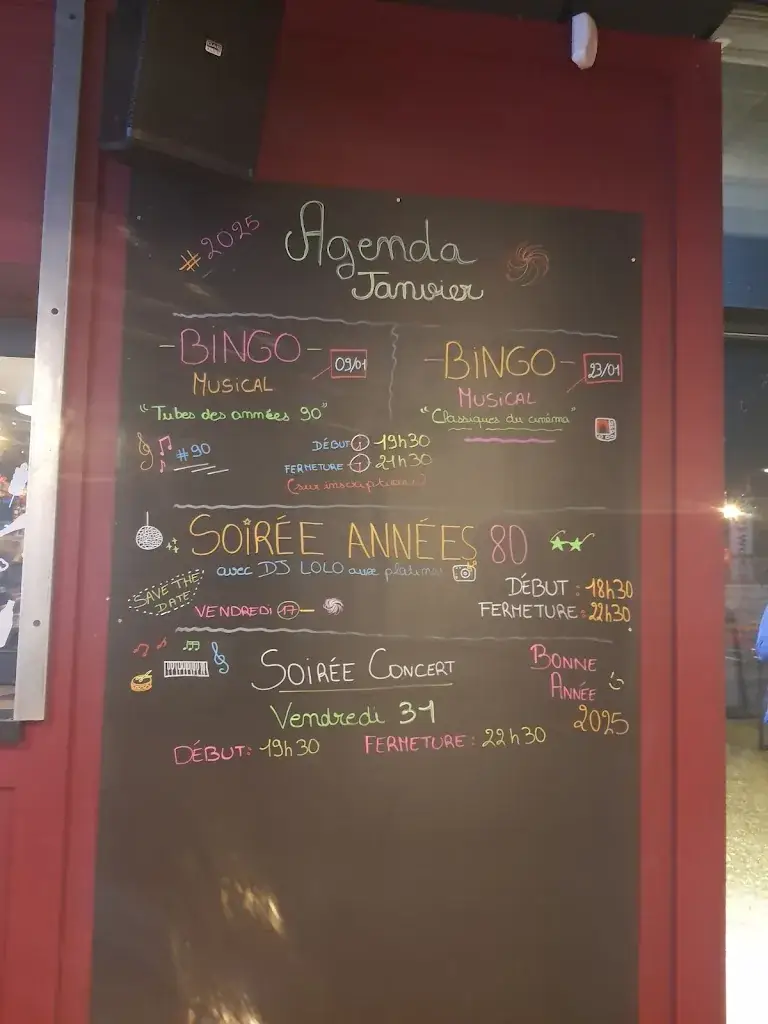 #2025
Agenda
Janvier
-BINGO-
09/01
MUSICAL
"Tubes des années 90"
#90
-BINGO-
23/01
MUSICAL
"Classiques du cinéma"
DÉBUT 19h30
FERMETURE 21h30
(sur inscriptions)
SOIRÉE ANNÉES 80
avec DJ LOLO aux platines
SAVE THE
DATE
VENDREDI 17
DÉBUT : 18h30
FERMETURE : 22h30
SOIRÉE CONCERT
Vendredi 31
DÉBUT: 19h30 FERMETURE : 22h30
BONNE
ANNÉE
2025